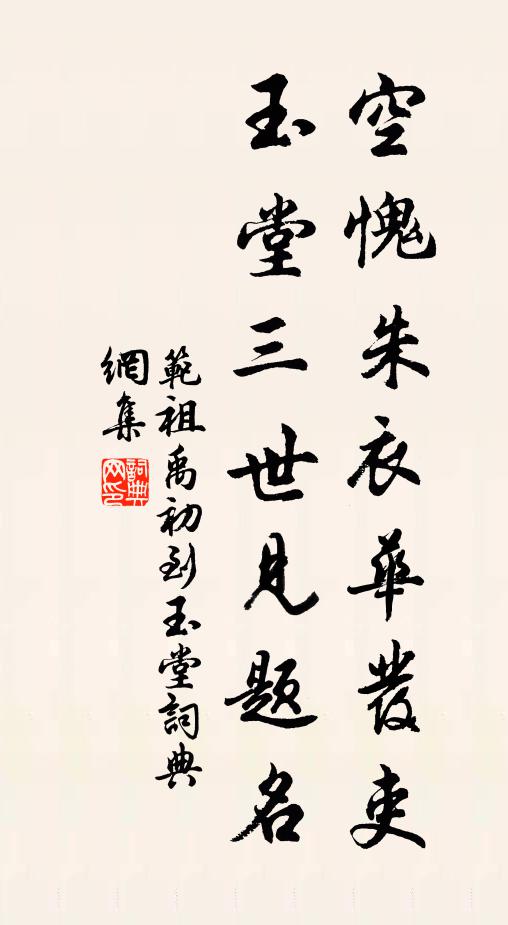 空愧朱衣華發吏
玉堂三世見題名
範祖禹初到玉堂詞典
網集
詞典網印